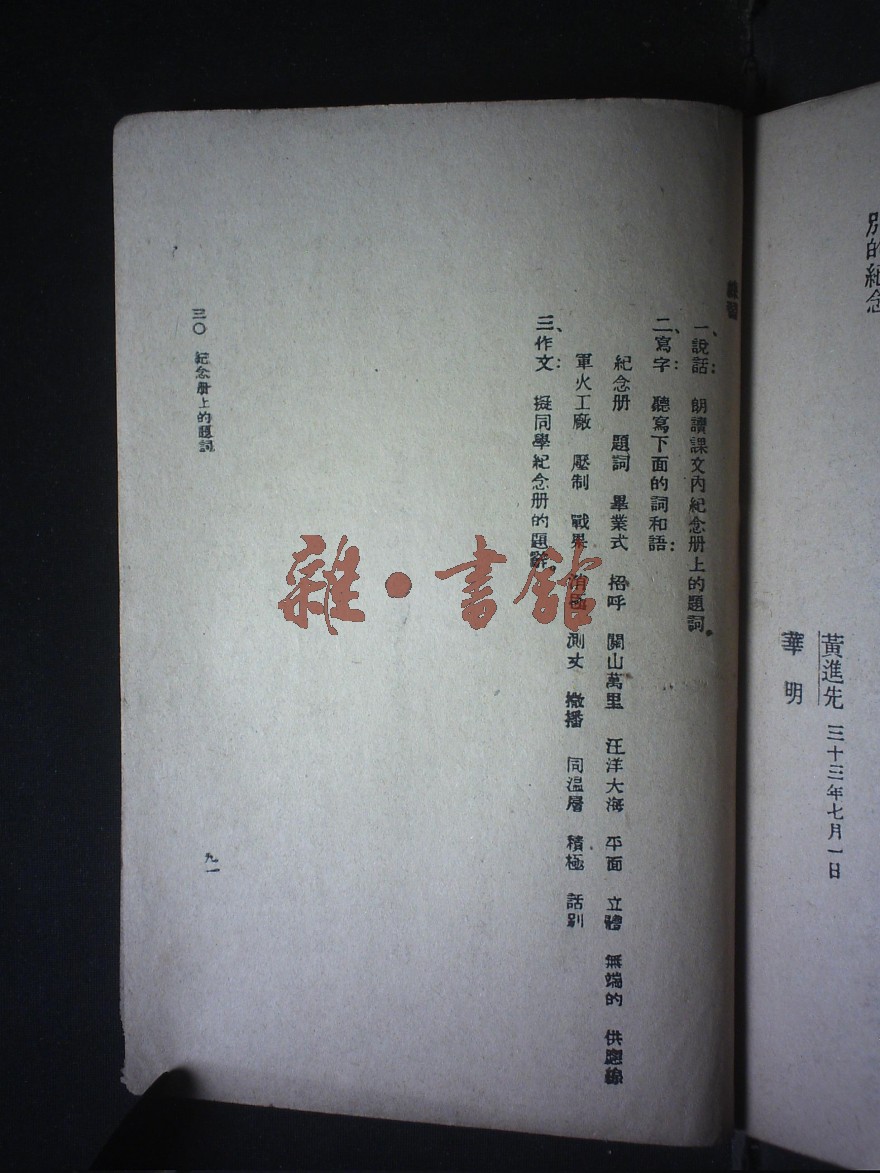 別的紀念
黃進先 三十三年七月一日
華 明
練習
一、說話： 朗讀課文內紀念册上的題詞。
二、寫字： 聽寫下面的詞和語：
紀念册 題詞 畢業式 招呼 關山萬里 汪洋大海 平面 立體 無端的 供應線
軍火工廠 壓制 戰果 消極 測丈 撒播 同溫層 積極 話別
三、作文： 擬同學紀念册的題辭。
三〇 紀念册上的題詞
九一
雜·書館